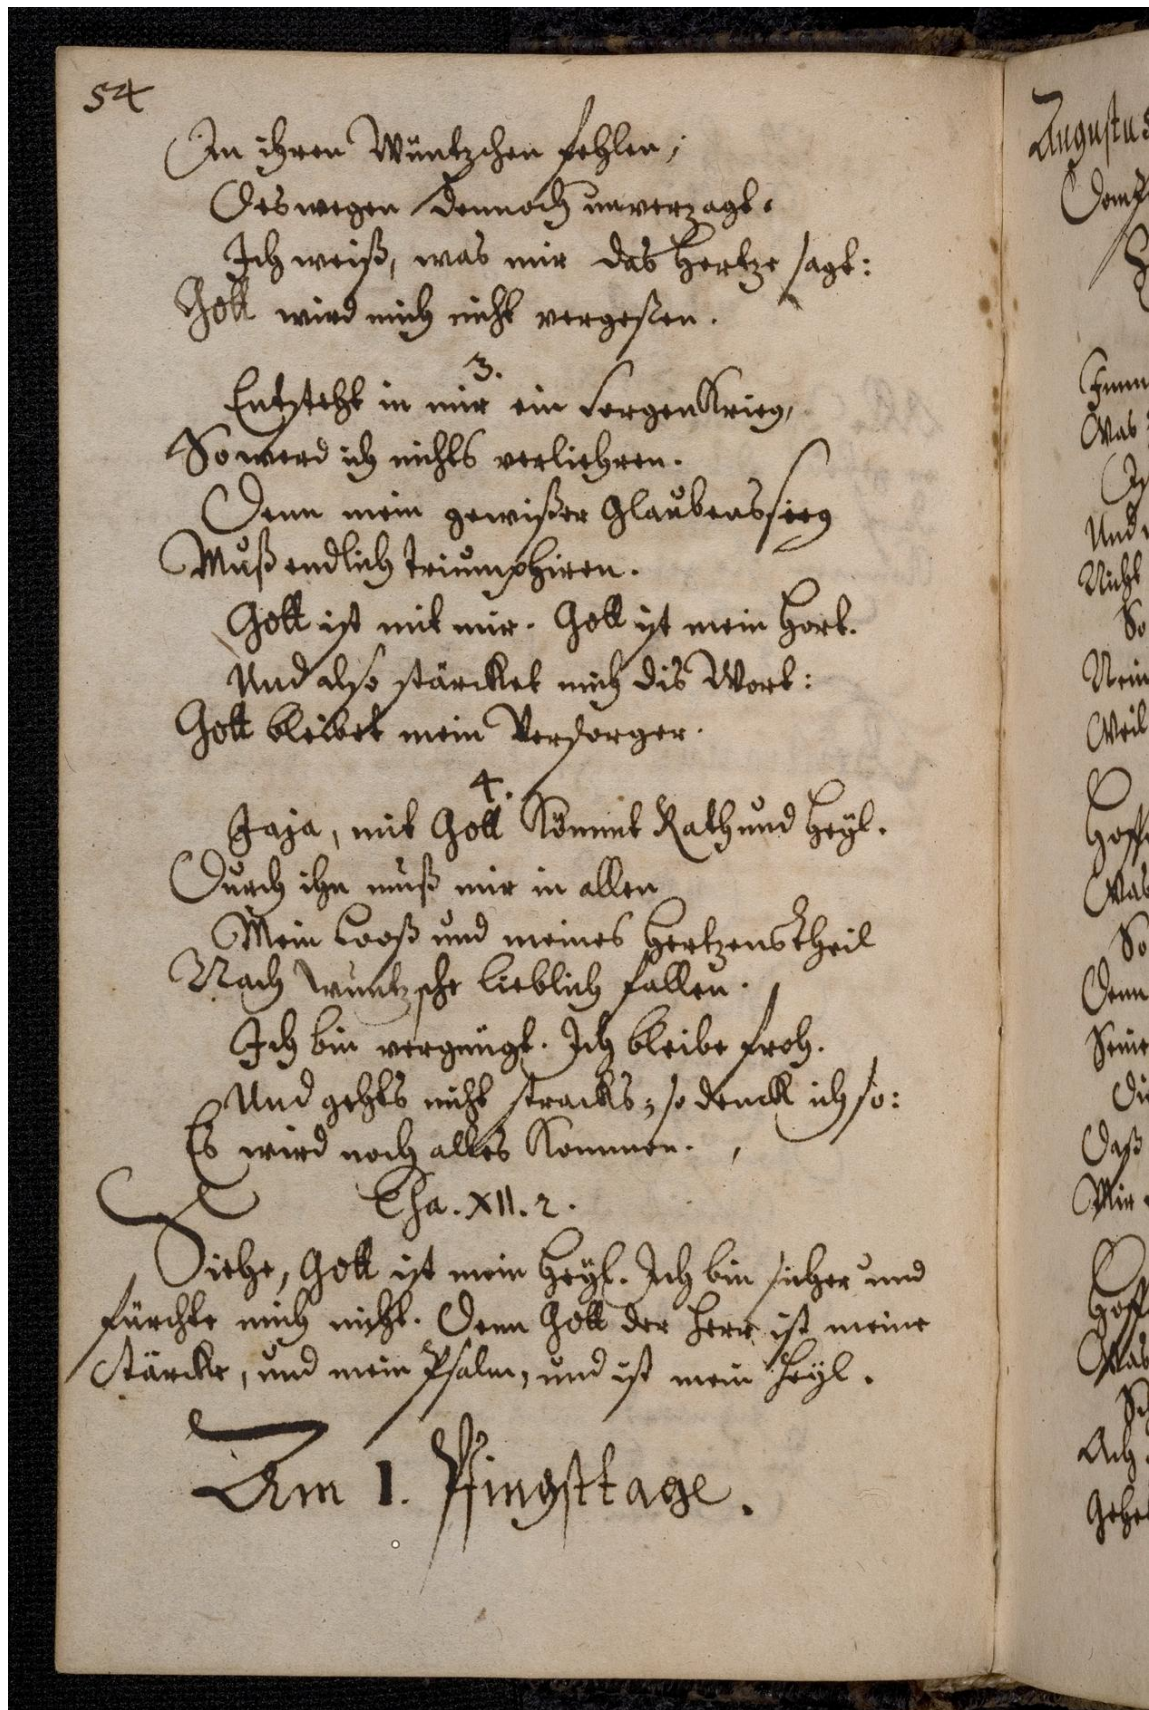 54
In ihren Wüntzschen fehlen;
Deswegen dennoch unverzagt.
Ich weiß, was mir das Hertze sagt:
Gott wird mich nicht vergeßen.
3.
Entsteht in mir ein SorgenKrieg,
So werd ich nichts verliehren.
Denn mein gewißer Glaubenssieg
Muß endlich triumphiren.
Gott ist mit mir. Gott ist mein Hort.
Und also stärcket mich dis Wort:
Gott bleibet mein Versorger.
4.
Jaja, mit Gott kömmt Rath und Heyl.
Durch ihn muß mir in allen
Mein Looß und meines Hertzenstheil
Nach wuntzsche lieblich fallen.
Ich bin vergnügt. Ich bleibe froh.
Und gehts nicht stracks, so denck ich so:
Es wird noch alles kommen.
Esa. XII. 2.
Siehe, Gott ist mein Heyl. Ich bin sicher und
fürchte mich nicht. Denn Gott der Herr ist meine
Stärcke, und mein Psalm, und ist mein Heyl.
Am 1. Pfingsttage.
Augustus
Was
Und
Nicht
So
Weil
Was
So
Denn
Seine
Daß
Mir
Was
Ach